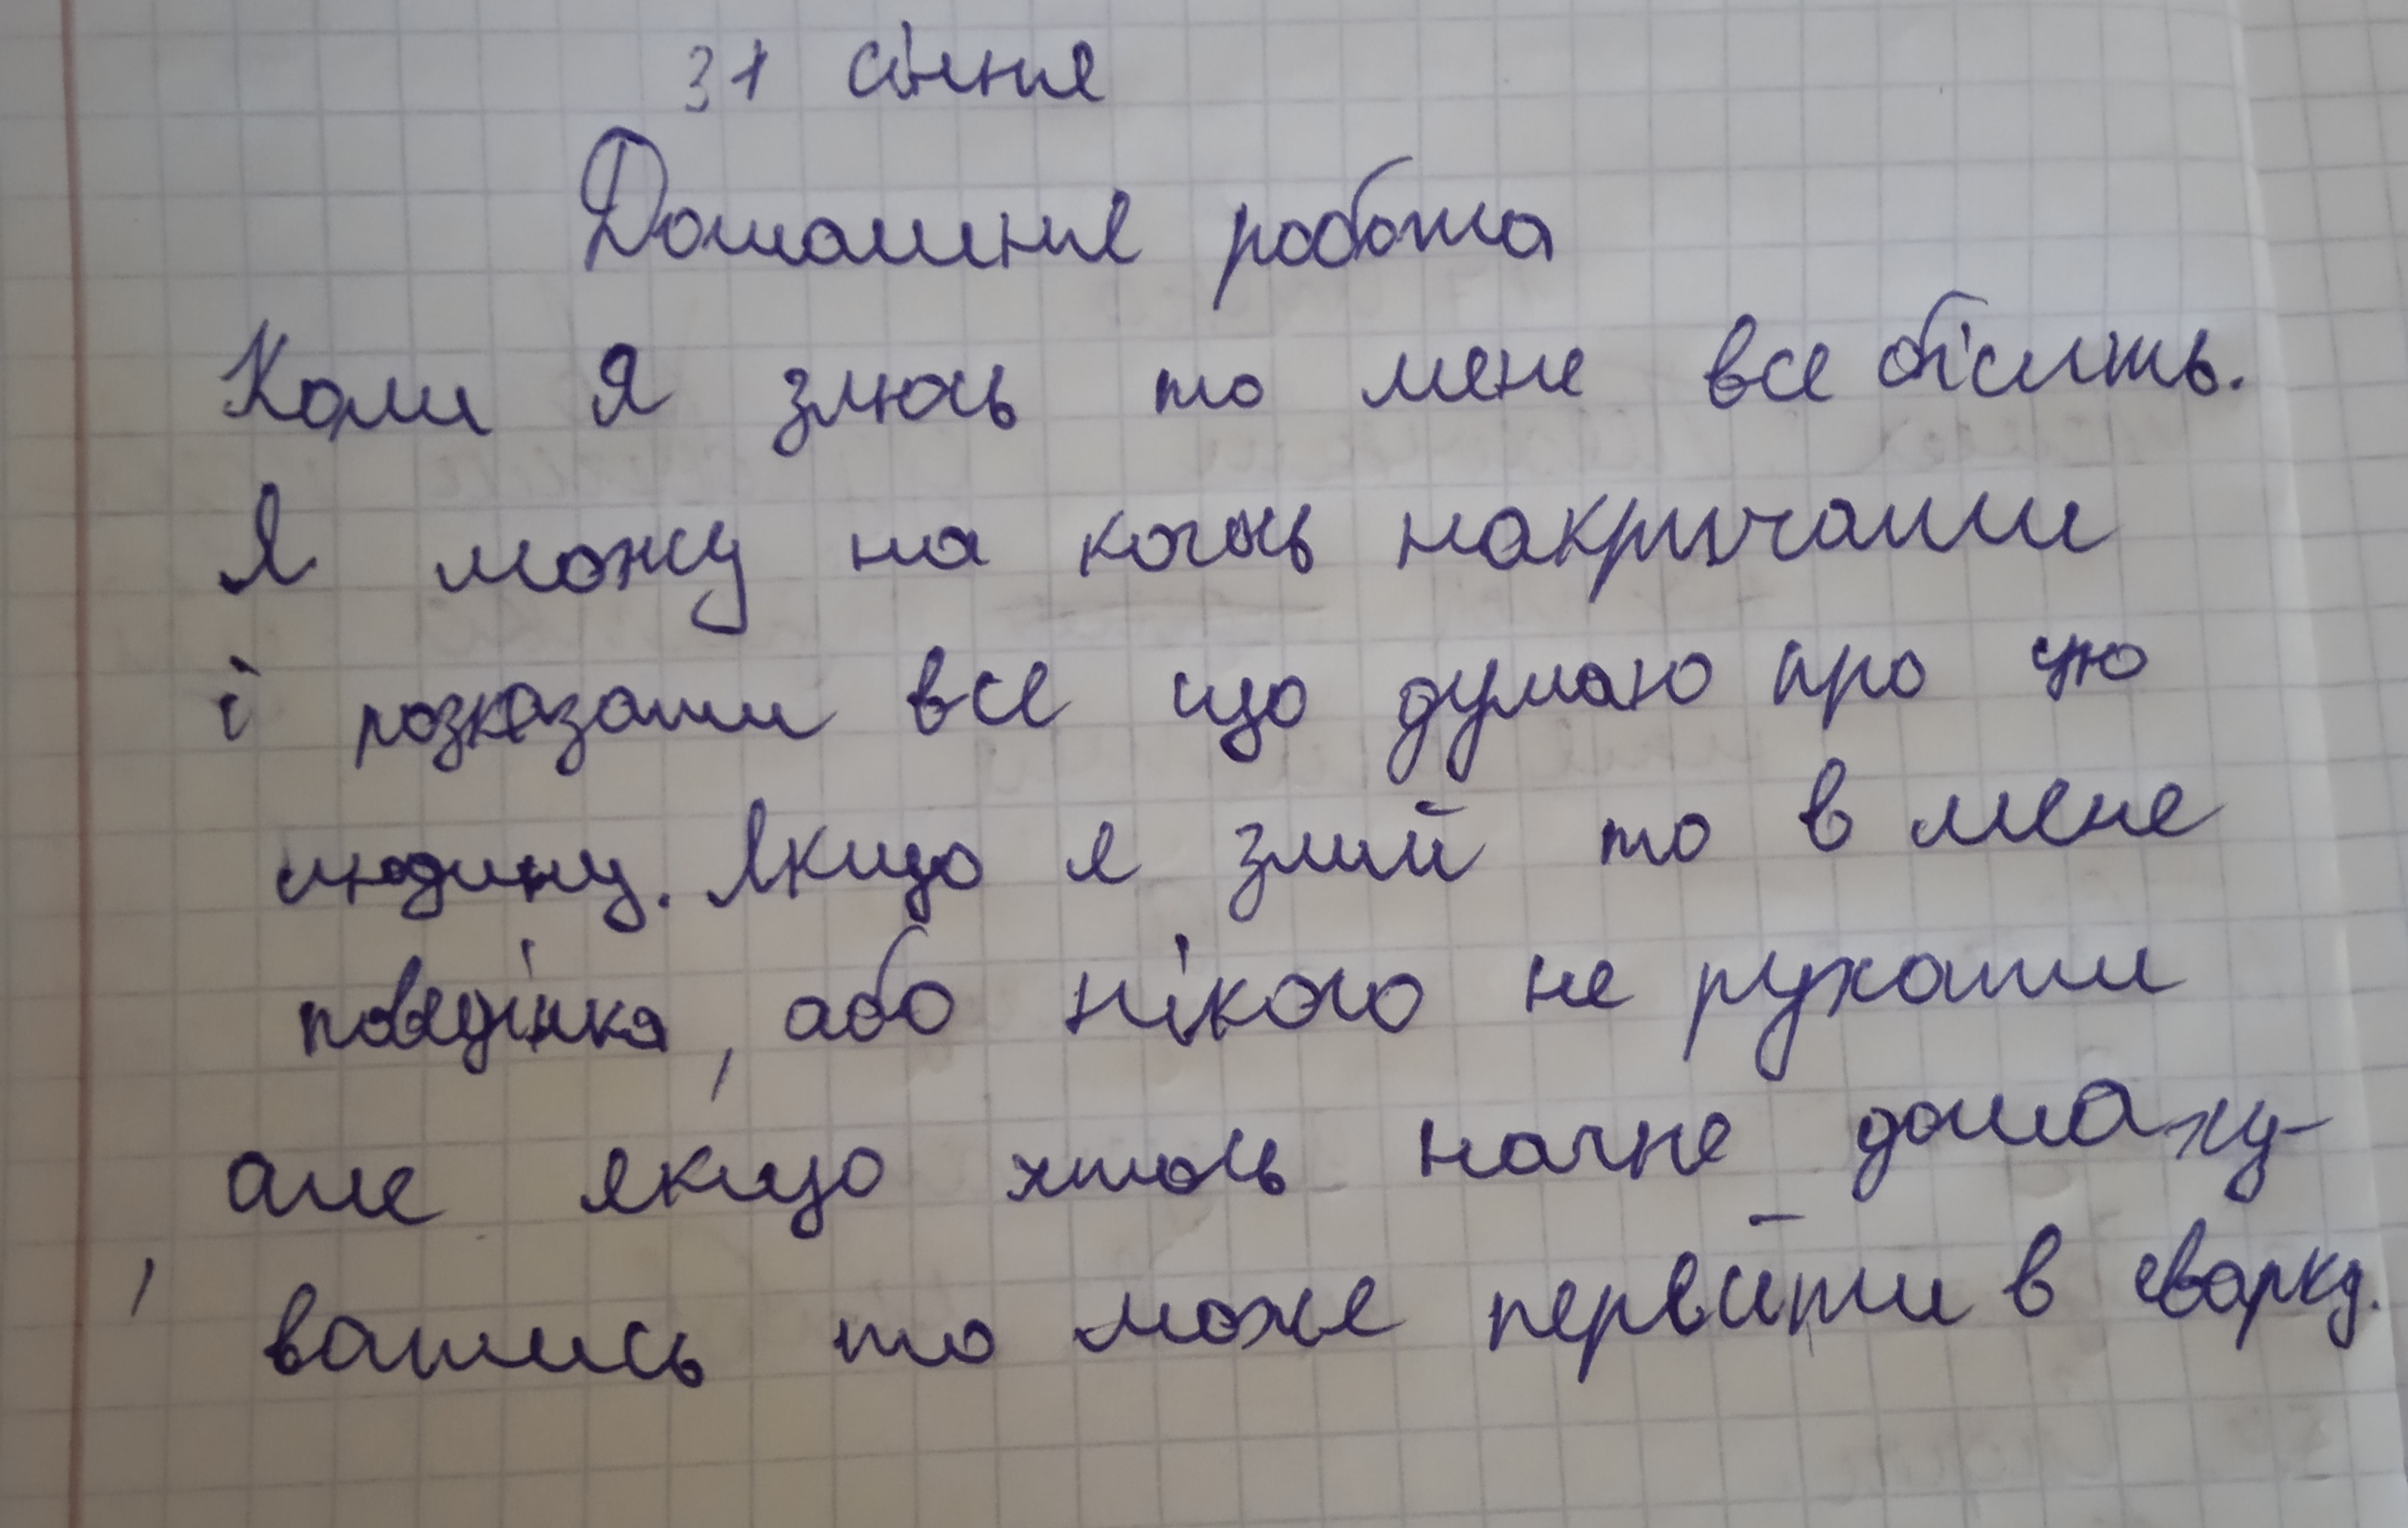 31 січня
Домашня робота
Коли я злюсь то мене все бісить.
Я можу на когось накричати
і розказати все що думаю про цю
людину. Якщо я злий то в мене
поведінка, або нікого не рухати
але якщо хтось начне домаху-
ватись то може первйти в сварку.